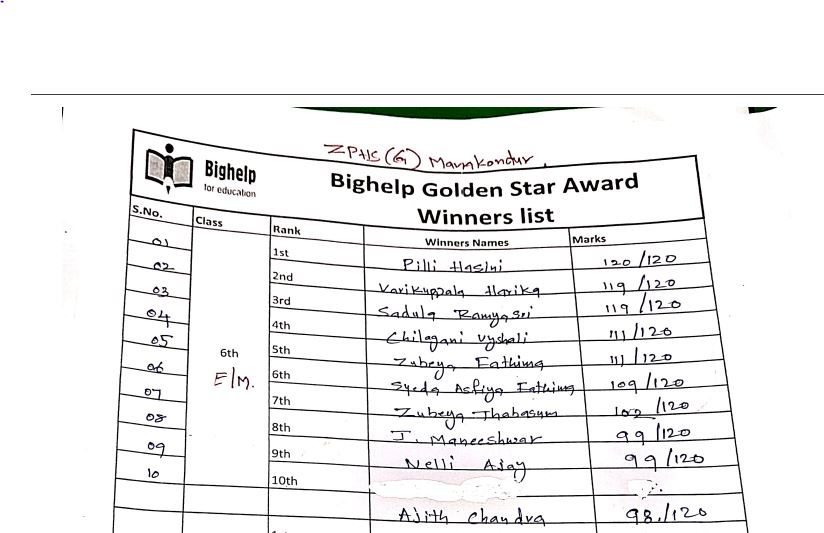 ZPHS (G) Mavnkondur.
Bighelp
for education
Bighelp Golden Star Award
Winners list
S.No. Class Rank Winners Names Marks
01 1st Pilli Hasini 120/120
02 2nd Varikuppala Harika 119/120
03 3rd Sadula Ramyasri 119/120
04 4th Chilagani Vyshali 111/120
05 5th Zubeya Fathima 111/120
6th
E/M.
06 6th Syeda Asfiya Fathima 109/120
07 7th Zubeya Thabasum /120
08 8th J. Maneeshwar 99/120
09 9th Nelli Ajay 99/120
10 10th
Ajith Chandra 98/120